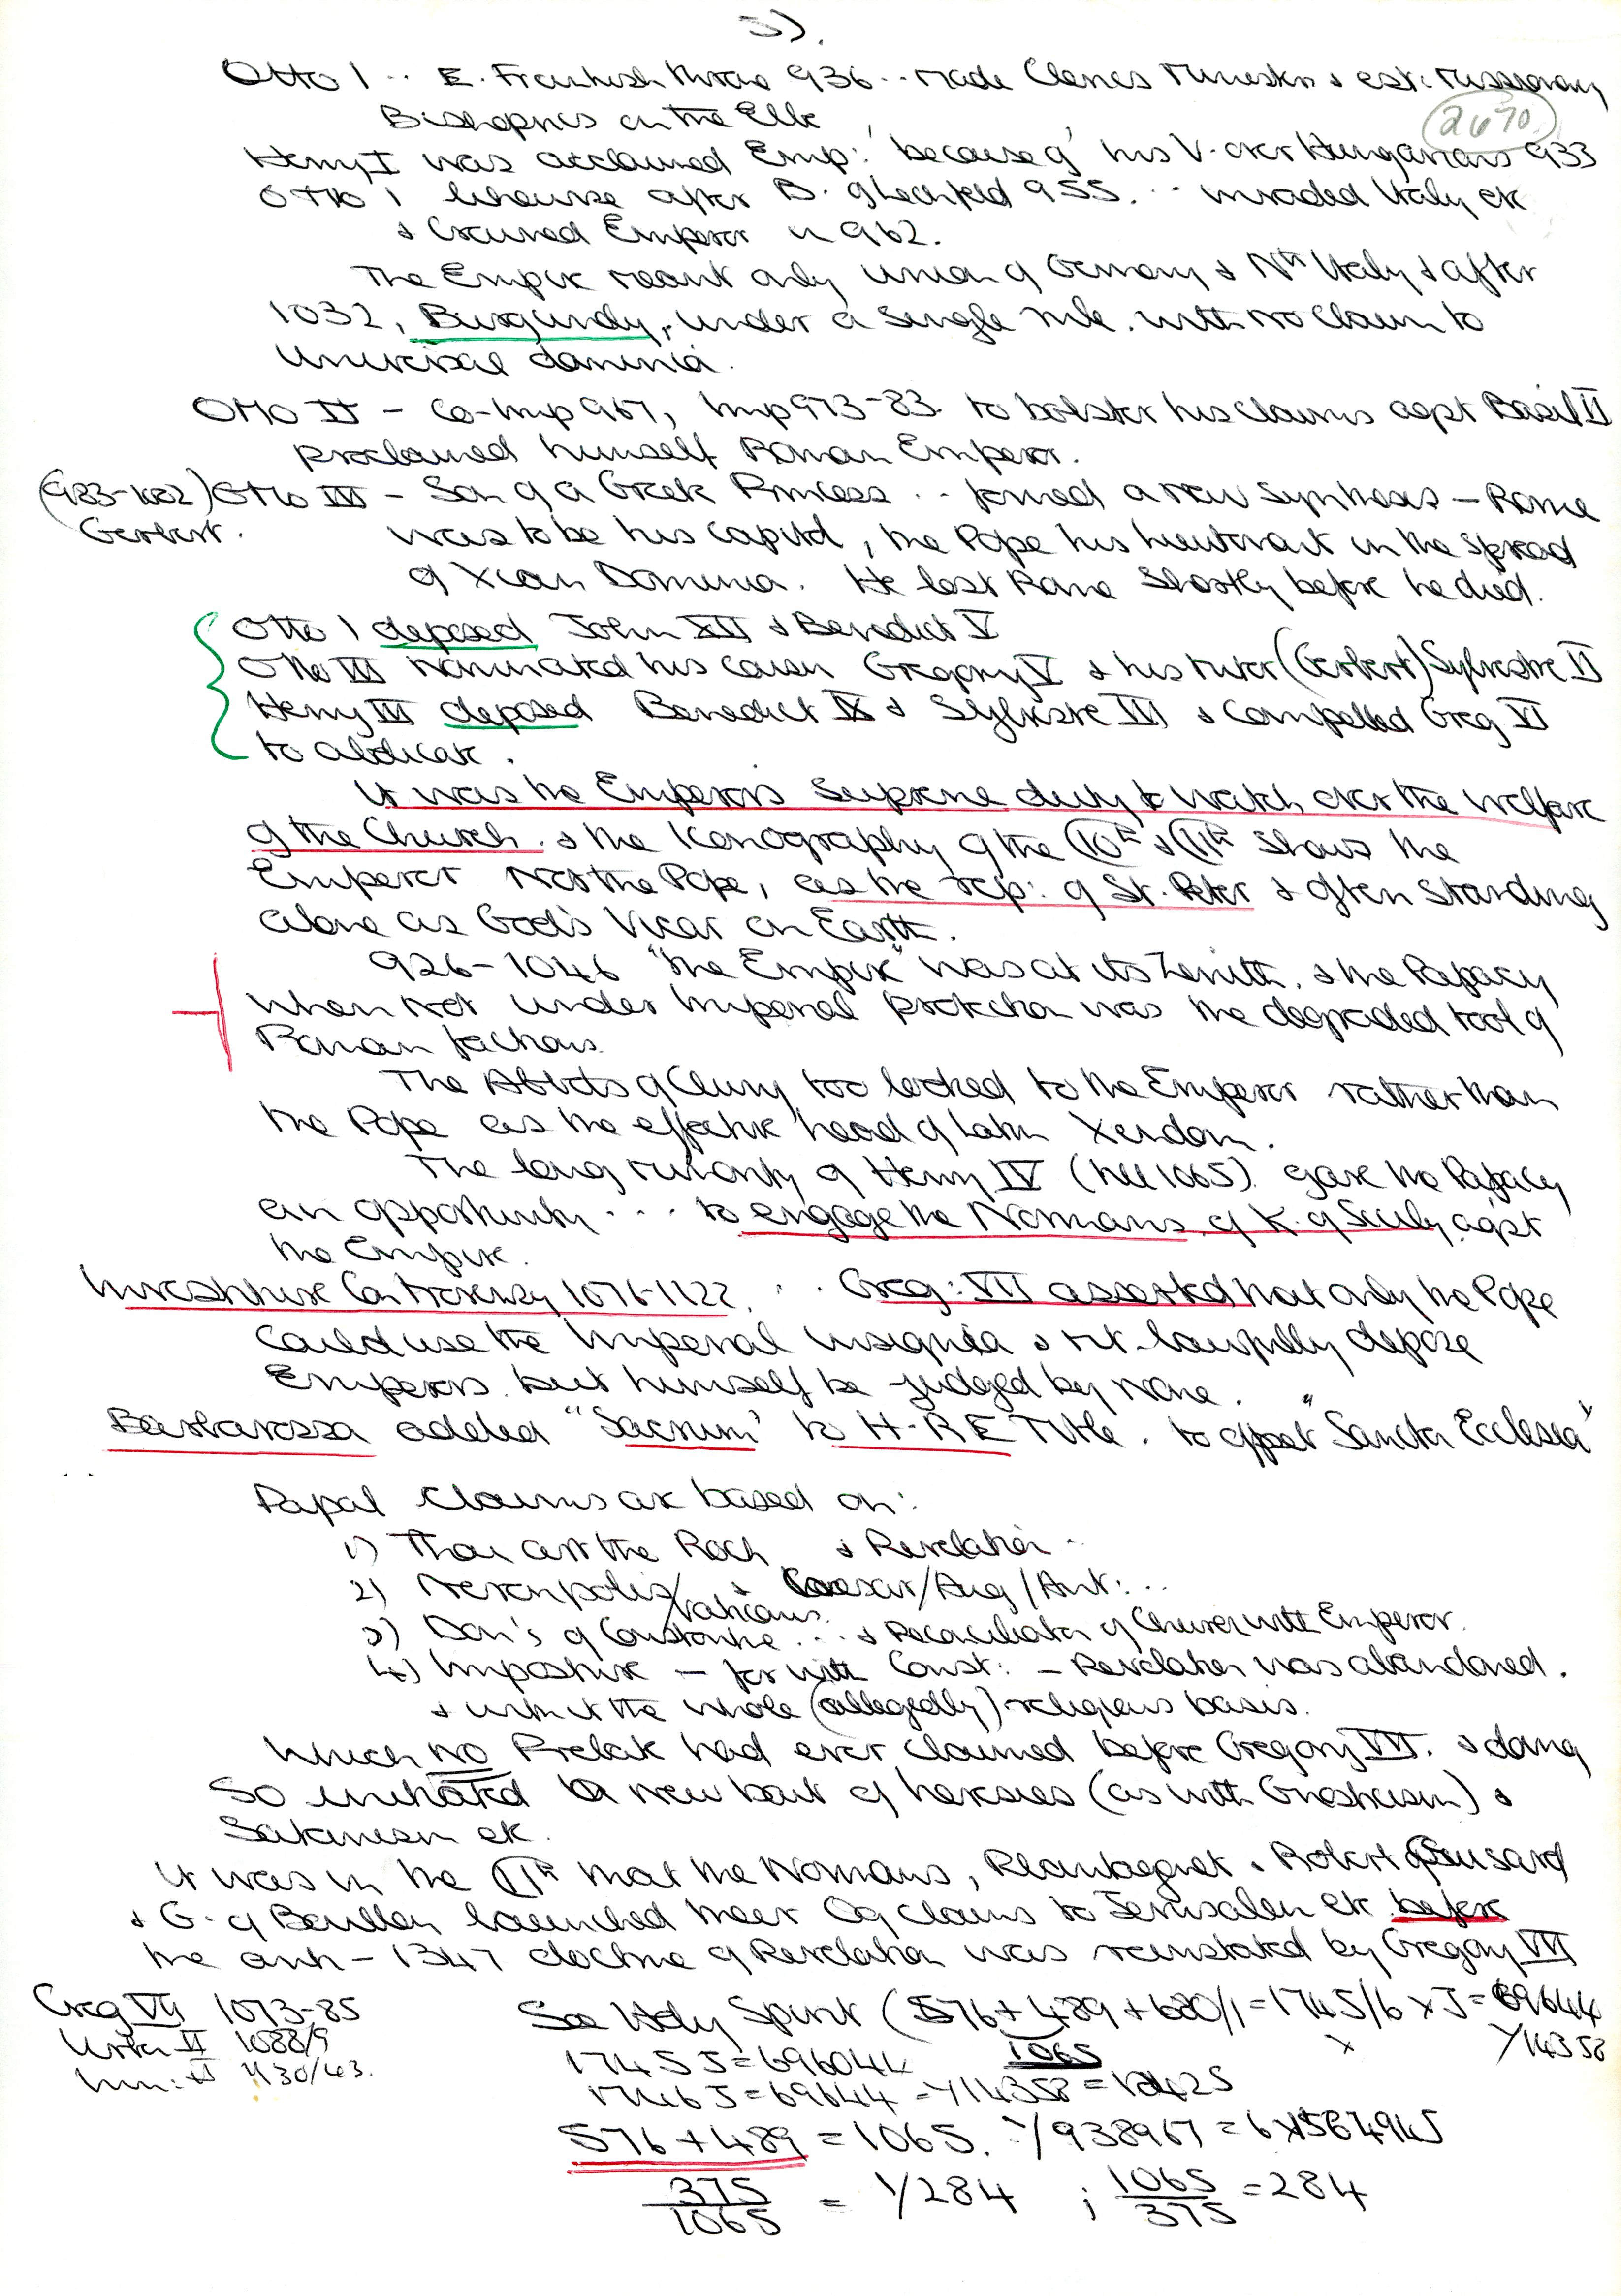 3).
Otto 1 .. E. Frankish throne 936 .. made Clerics Ministers & est: missionary
2670
Bishoprics on the Elbe
Henry I was acclaimed Emp: 'because of' his V. over Hungarians 933
Otto 1 likewise after B. of Lechfeld 955. .. invaded Italy etc
& Crowned Emperor in 962.
The Empire meant only union of Germany & Nth Italy & after
1032, Burgundy, under a single rule. with no claim to
universal dominion.
Otto II – Co-Imp 967, Imp 973-83. to bolster his claims agst Basil II
proclaimed himself Roman Emperor.
(983-1002) Otto III – Son of a Greek Princess .. formed a new synthesis – Rome
Gerbert. was to be his capital, the Pope his lieutenant in the spread
of Xian Dominion. He lost Rome shortly before he died.
Otto 1 deposed John XII & Benedict V
Otto III nominated his cousin Gregory V & his tutor (Gerbert) Sylvestre II
Henry III deposed Benedict IX & Sylvestre III & compelled Greg VI
to abdicate.
It was the Emperors supreme duty to watch over the welfare
of the Church. & the Iconography of the 10th & 11th shows the
Emperor Not the Pope, as the rep: of St. Peter & often standing
alone as God's Vicar on Earth.
926-1046 "the Empire" was at its Zenith. & the Papacy
when not under Imperial protection was the degraded tool of
Roman factions.
The Abbots of Cluny too looked to the Emperor rather than
the Pope as the effective head of Latin Xendom.
The long minority of Henry IV (till 1065) gave the Papacy
an opportunity . . . to engage the Normans of K. of Sicily agst
the Empire.
Investiture Controversy 1076-1122. . . Greg: VII asserted that only the Pope
could use the Imperial Insignia & lawfully depose
Emperors. but himself be judged by none.
Barbarossa added "Sacrum" to H-RE Title. to offset "Sancta Ecclesia"
Papal Claims are based on:
1) Thou art the Rock & Revelation ..
2) Nekropolis/Vaticans. & Caesar/Aug/Ant: ..
3) Don's of Constantine ... & Reconciliation of Church with Emperor.
4) Imposture – for with Const: – Revelation was abandoned.
& with it the whole (allegedly) religious basis.
Which no Prelate had ever claimed before Gregory VII. & doing
so initiated a new bout of heresies (as with Gnosticism) &
Satanism etc.
It was in the 11th that the Normans, Plantagenet & Robert Guisard
& G. of Bouillon launched their claims to Jerusalem etc. before
the anti-1347 doctrine of Revelation was reinstated by Gregory VII
Greg VII 1073-85
Urban II 1088/9
Inn: II 1130/43.
See Holy Spirit (576 + 489 + 680/1 = 1745/6 x J = 69644
1065
Y14358
1745 J = 696044
1746 J = 69644 = Y14358 =
576 + 489 = 1065. Y938967 =
375/1065 = Y284 ; 1065/375 = 284